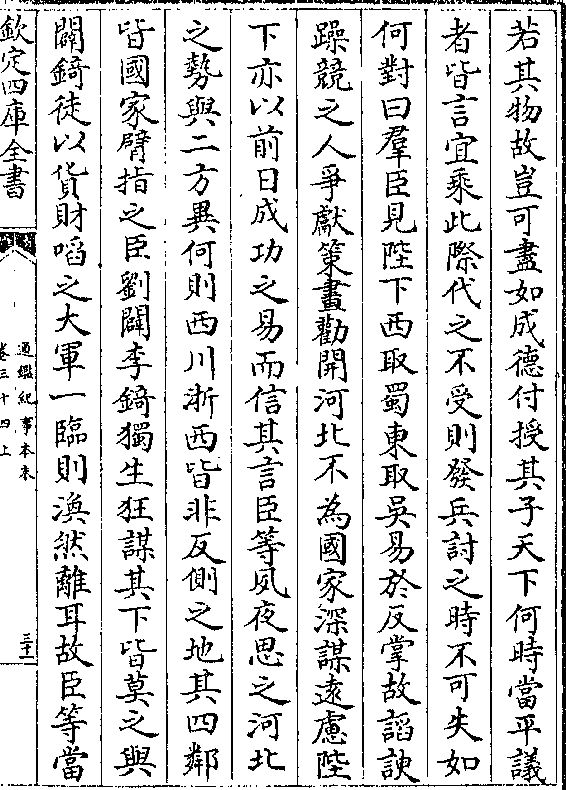 若其物故豈可盡如成德付授其子天下何時當平議
者皆言宜乗此際代之不受則發兵討之時不可失如
何對曰羣臣見陛下西取蜀東取吳易於反掌故諂諛
躁競之人爭獻策畫勸開河北不為國家深謀逺慮陛
下亦以前日成功之易而信其言臣等夙夜思之河北
之勢與二方異何則西川浙西皆非反側之地其四鄰
皆國家臂指之臣劉闢李錡獨生狂謀其下皆莫之與
闢錡徒以貨財啗之大軍一臨則渙然離耳故臣等當
欽定四庫全書
通鑑紀事本末
卷三十四上
三十一